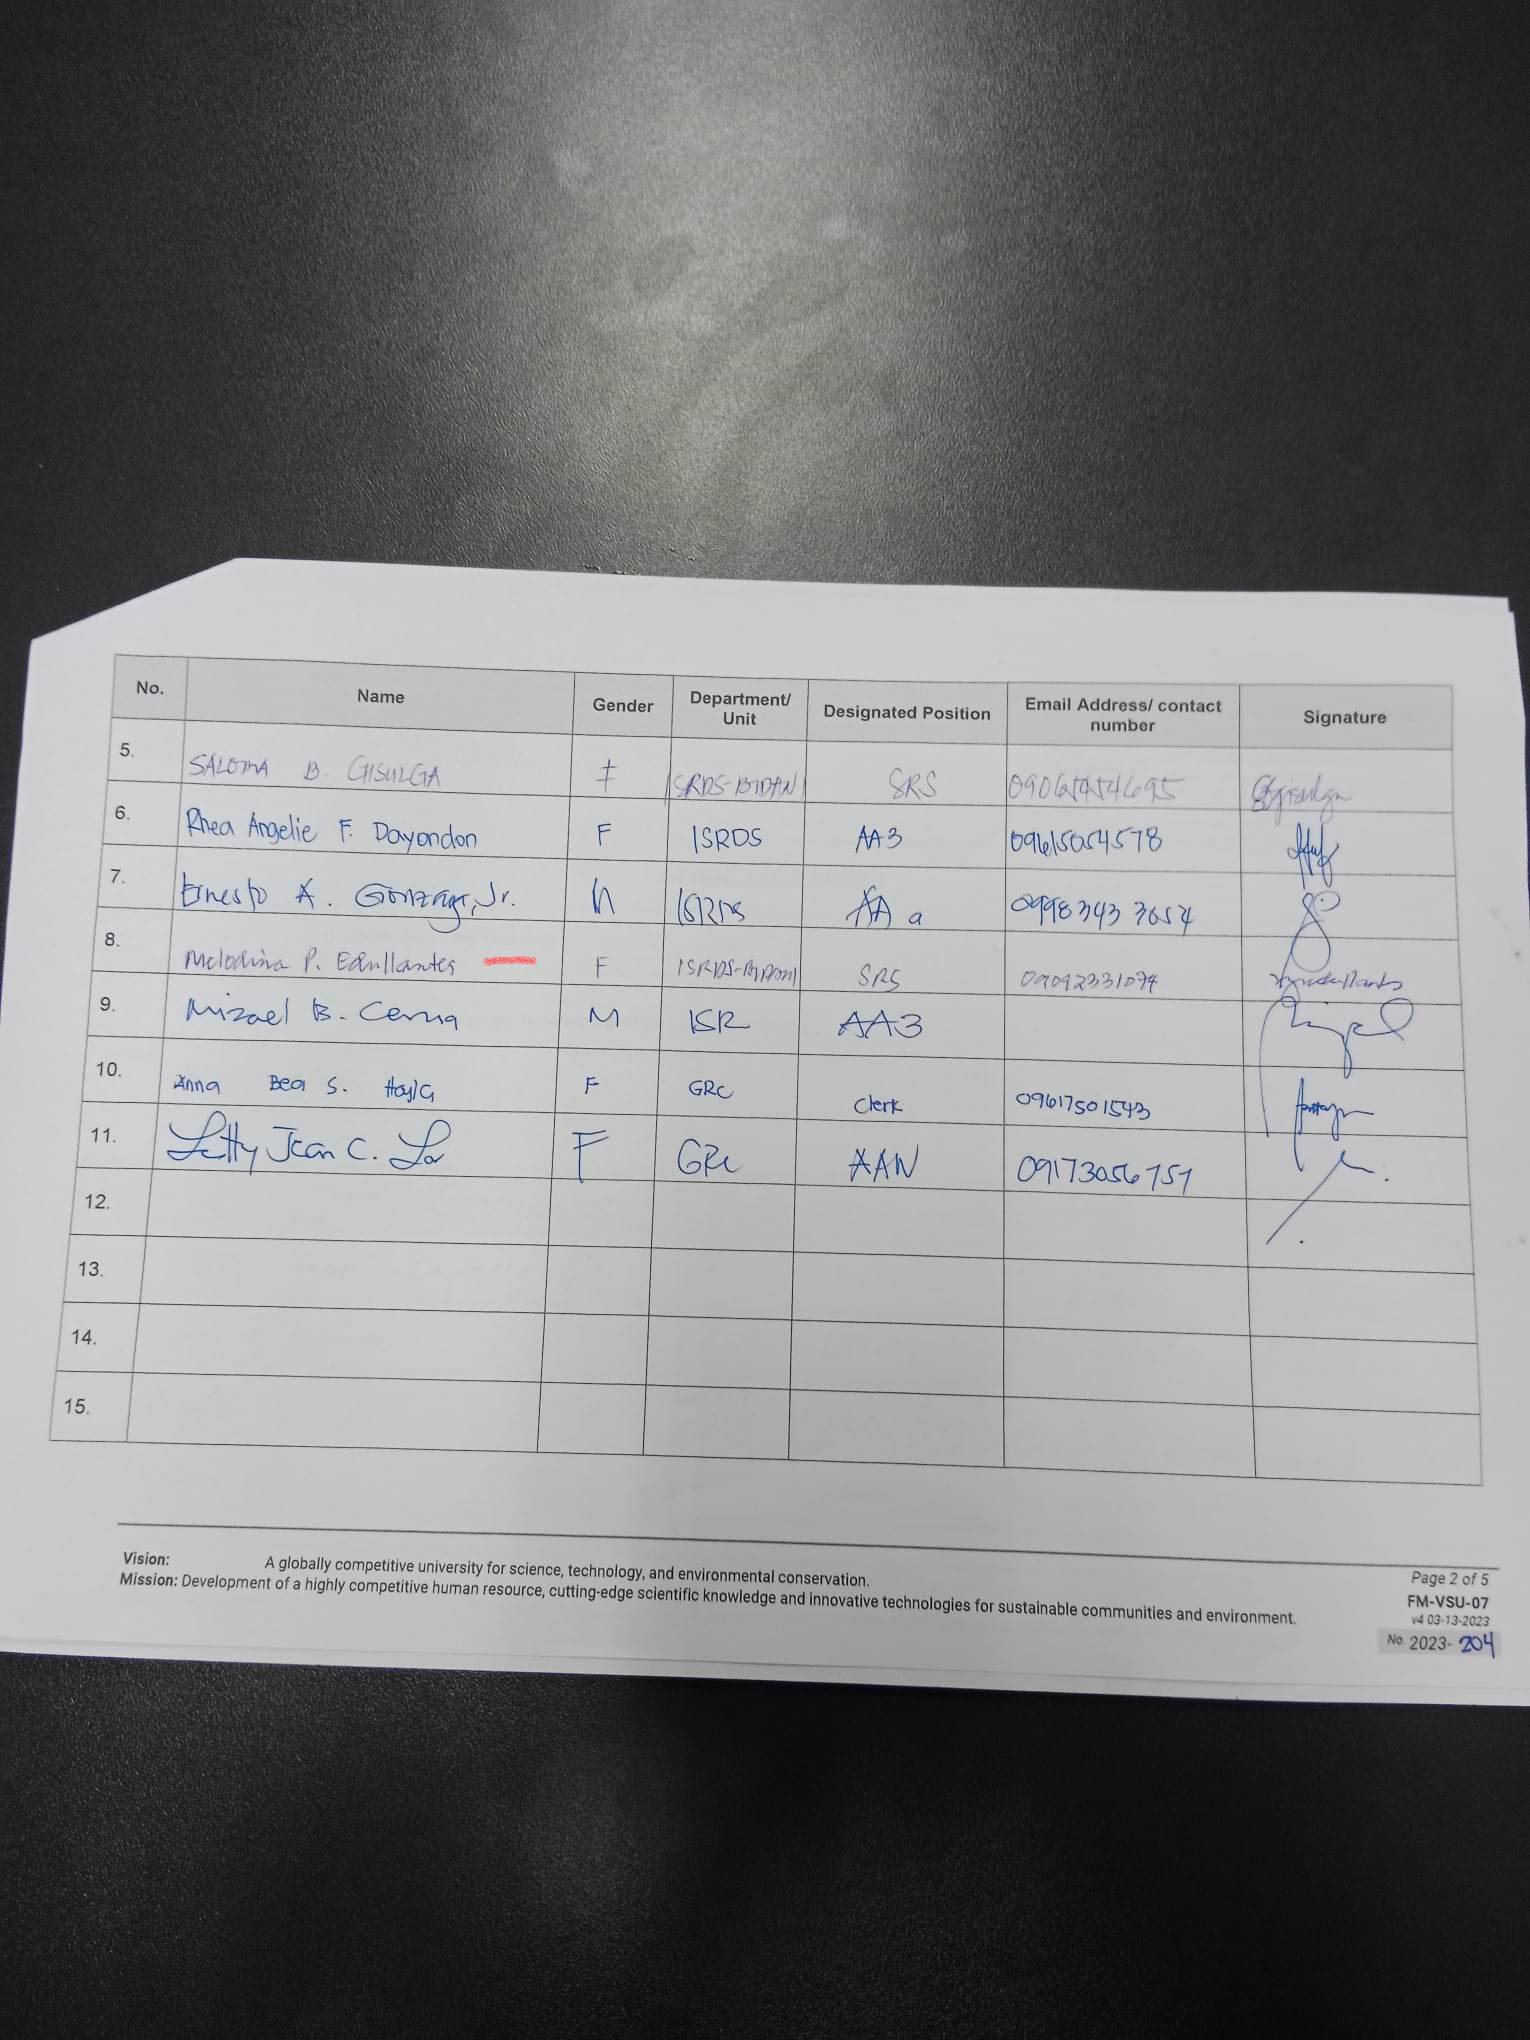 No. Name Gender Department/ Unit Designated Position Email Address/ contact number Signature
5. SALOMA B. GISULGA F ISRDS- SRS
6. Rhea Angelie F. Dayondon F ISRDS AA3 09615054578
7. Ernesto A. Gonzaga, Jr. ISRDS AA a 0998 343 3654
8. Melodina P. Edullantes F SRS 09092331074
9. Mizael B. Cerna M ISR AA3
10. Anna Bea S. F GRC Clerk 09617501543
11. Letty Jean C. Lor F GRC 09173056757
12.
13.
14.
15.
Vision: A globally competitive university for science, technology, and environmental conservation.
Mission: Development of a highly competitive human resource, cutting-edge scientific knowledge and innovative technologies for sustainable communities and environment.
Page 2 of 5
FM-VSU-07
v4 03-13-2023
No. 2023- 204